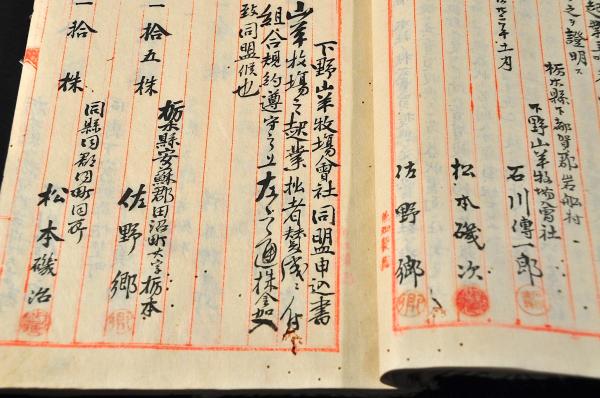 之ヲ證明ス
栃木縣下都賀郡岩船村
下野山羊牧場會社
石川傳一郎
松本磯次
佐野郷
下野山羊牧場會社同盟申込書
山羊牧場之起業拙者賛成ニ付
組合規約遵守之上左之通株金加入
致同盟候也
栃木縣安蘇郡田沼町大字栃本
一拾五株
佐野郷
同縣同郡同町同所
一拾株
松本磯治